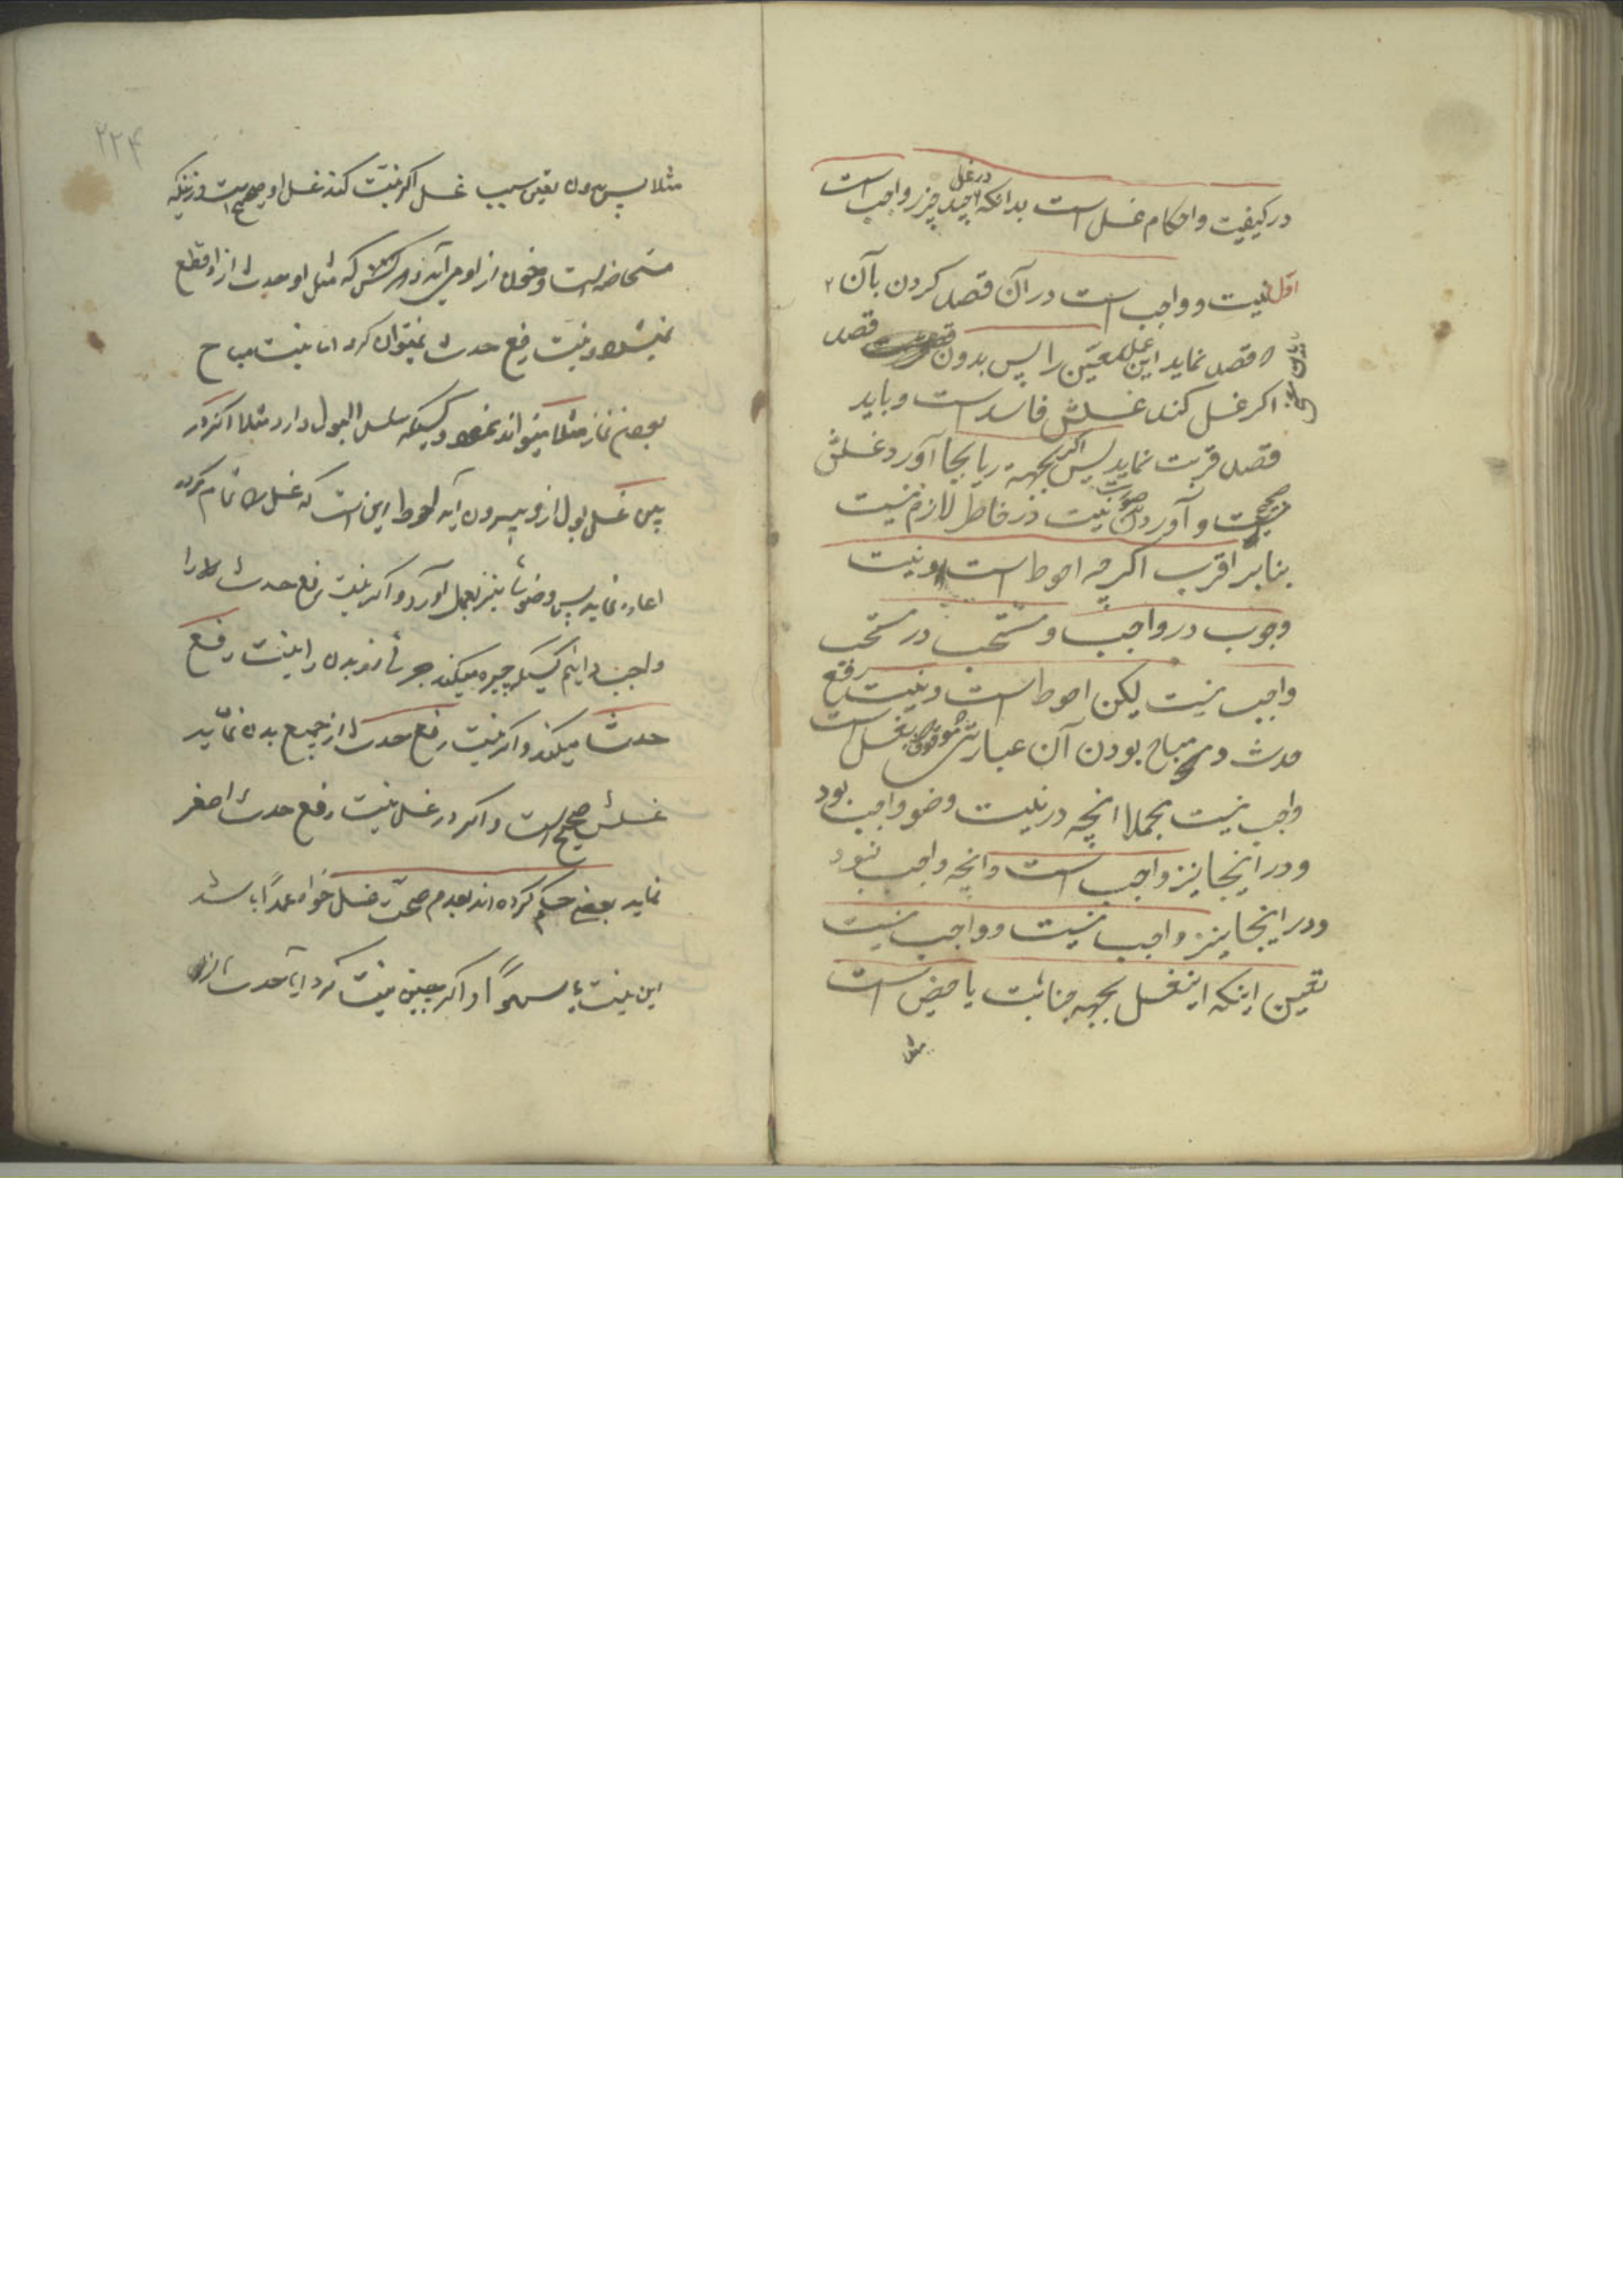 در کیفیت و احکام غسل است بدانکه در غسل چند چیز واجب است
اول نیت و واجب است در آن قصد کردن بآن
قصد نماید این غسل معین را پس بدون قصد
اگر غسل کند غسلش فاسد است و باید
قصد قربت نماید پس اگر بجهة ریا بجا آورد غسلش
صحیح نیست و آوردن صورت نیت در خاطر لازم نیست
بنابر اقرب اگرچه احوط است و نیت
وجوب در واجب و مستحب در مستحب
واجب نیست لیکن احوط است و نیت رفع
حدث و مباح بودن آن عبارتی که موقوف بغسل است
واجب نیست مجملا انچه در نیت وضو واجب بود
و در اینجا نیز واجب است و انچه واجب نبود
و در اینجا نیز واجب نیست و واجب نیست
تعیین اینکه اینغسل بجهة جنابت یا حیض است
مثلا
۲۲۴
مثلا پس بدون تعیین سبب غسل اگر نیت کند غسل او صحیح است و زنیکه
مستحاضه است و خون از او می آید و هر کس که مثل او حدث از او قطع
نمیشود نیت رفع حدث نمیتوان کرد اما نیت مباح
بودن نماز مثلا میتواند نمود و کسیکه سلس البول دارد مثلا اگر در
بین غسل بول از او بیرون آید احوط این است که غسل را تمام کرده
اعاده نماید پس وضوئی نیز بعمل آورد و اگر نیت رفع حدث را
کسیکه جبیره میکند جزئی از بدن را نیت رفع
حدث میکند و اگر نیت رفع حدث از جمیع بدن نماید
غسلش صحیح است و اگر در غسل نیت رفع حدث اصغر
نماید بعضی حکم کرده اند بعدم صحت غسل خواه عمداً باشد
این نیت یا سهواً و اگر چنین نیت کرد آیا حدث از